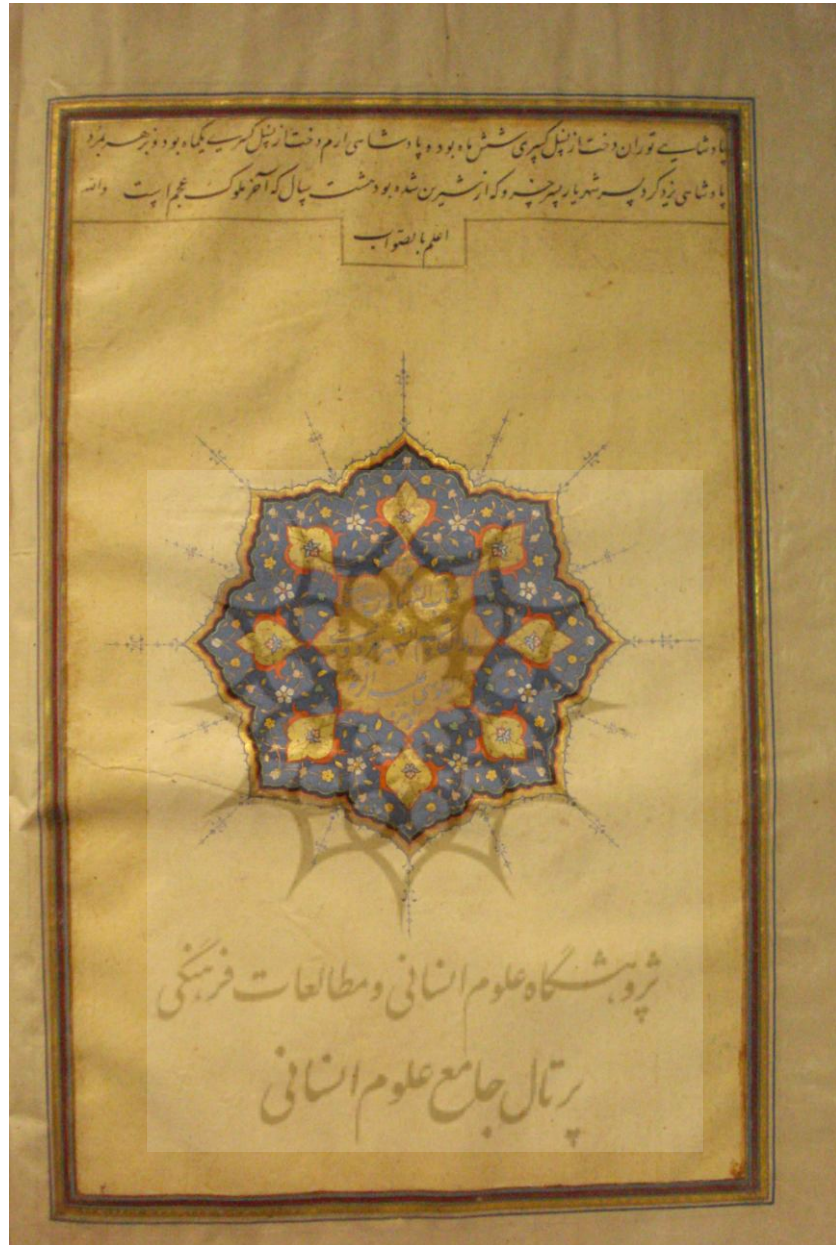 پادشاهی توران دخت از نسل کسری شش ماه بوده پادشاهی ارم دخت از نسل کسری یکماه بود نوبر هرمزد
پادشاهی یزدکرد پسر شهریار پسر خسرو که از شیرین شده بود هشت سال که آخر ملوک عجم است والله
اعلم بالصواب
پژوهشگاه علوم انسانی و مطالعات فرهنگی
پرتال جامع علوم انسانی